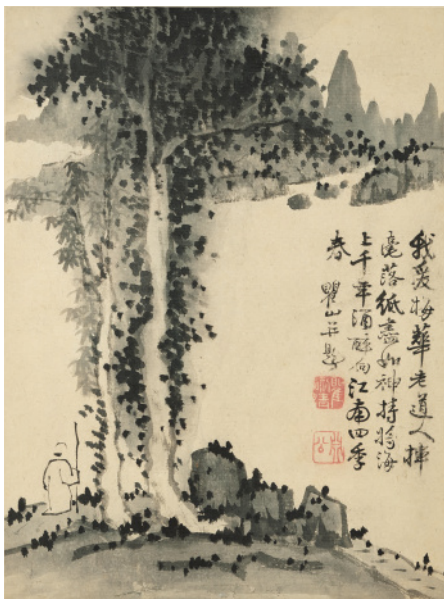 我愛梅華老道人揮
毫落紙盡如神持將海
上千年酒醉向江南四季
春 瞿山并題